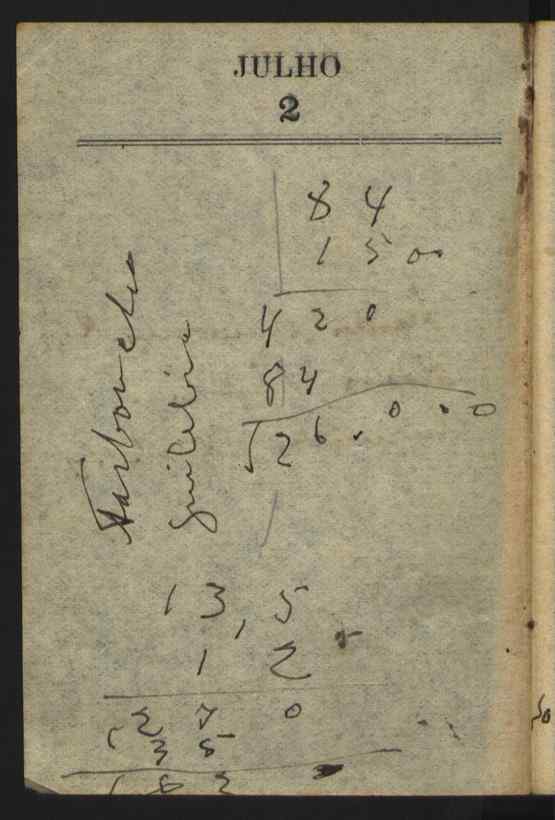 JULHO
2
8 4
1 5 00
4 2 0
8 4
1 2 6 . 0 . 0
1 3 , 5
1 2
2 7 0
1 3 5
1 6 2